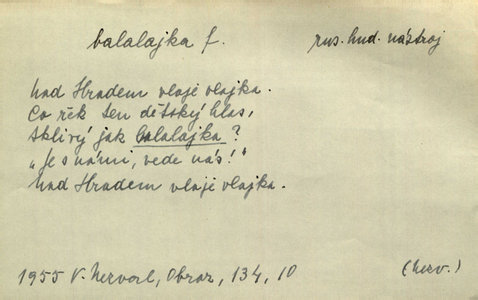 balalajka f. rus. hud. nástroj
nad Hradem vlaje vlajka.
Co řek ten dětský hlas,
tklivý jak balalajka?
„Je s námi, vede nás!"
nad Hradem vlaje vlajka.
1955 V. Nezval, Obraz, 134, 10 (nerv.)